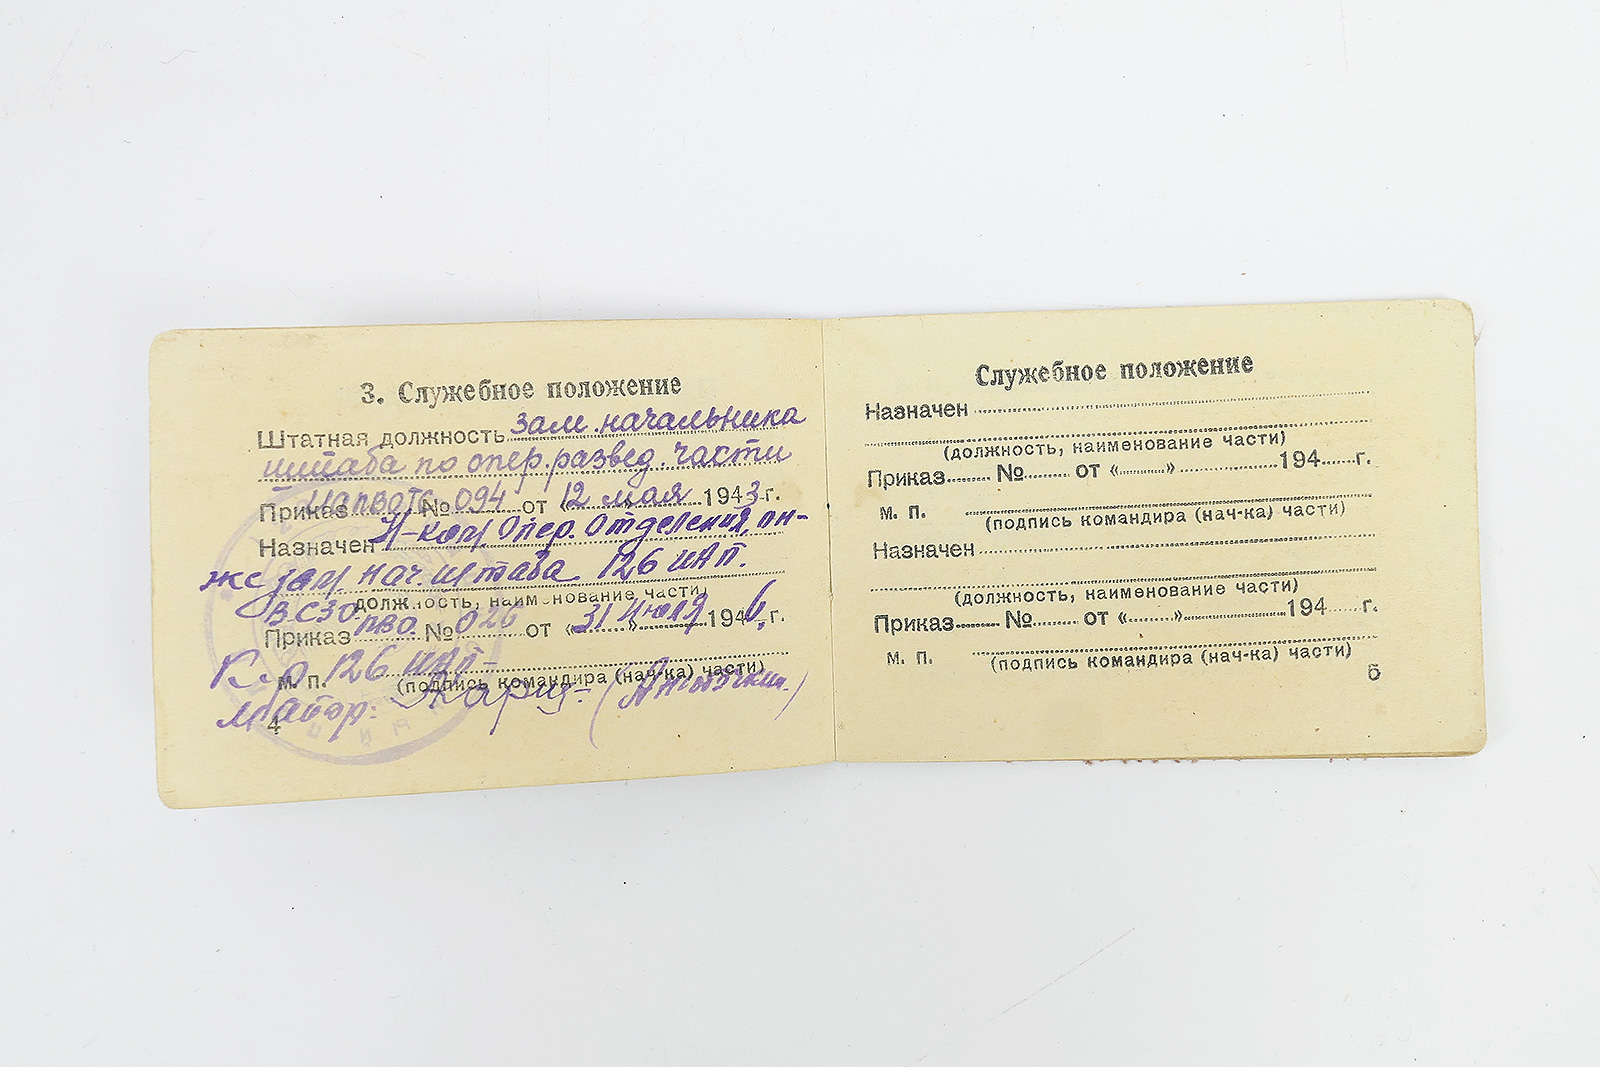 3. Служебное положение
Штатная должность зам. начальника
штаба по опер. развед. части
Приказ № 094 от «12 мая 1943 г.
Назначен Н-ком опер. отделения, он-
же зам. нач. штаба 126 ИАП.
(должность, наименование части)
Приказ ВСЗО ПВО. № 026 от «31» июля 1946 г.
К-р 126 ИАП -
М. П. (подпись командира (нач-ка) части)
майор:
4
Служебное положение
Назначен
(должность, наименование части)
Приказ № от « » 194 г.
М. П.
(подпись командира (нач-ка) части)
Назначен
(должность, наименование части)
Приказ № от « » 194 г.
М. П.
(подпись командира (нач-ка) части)
5